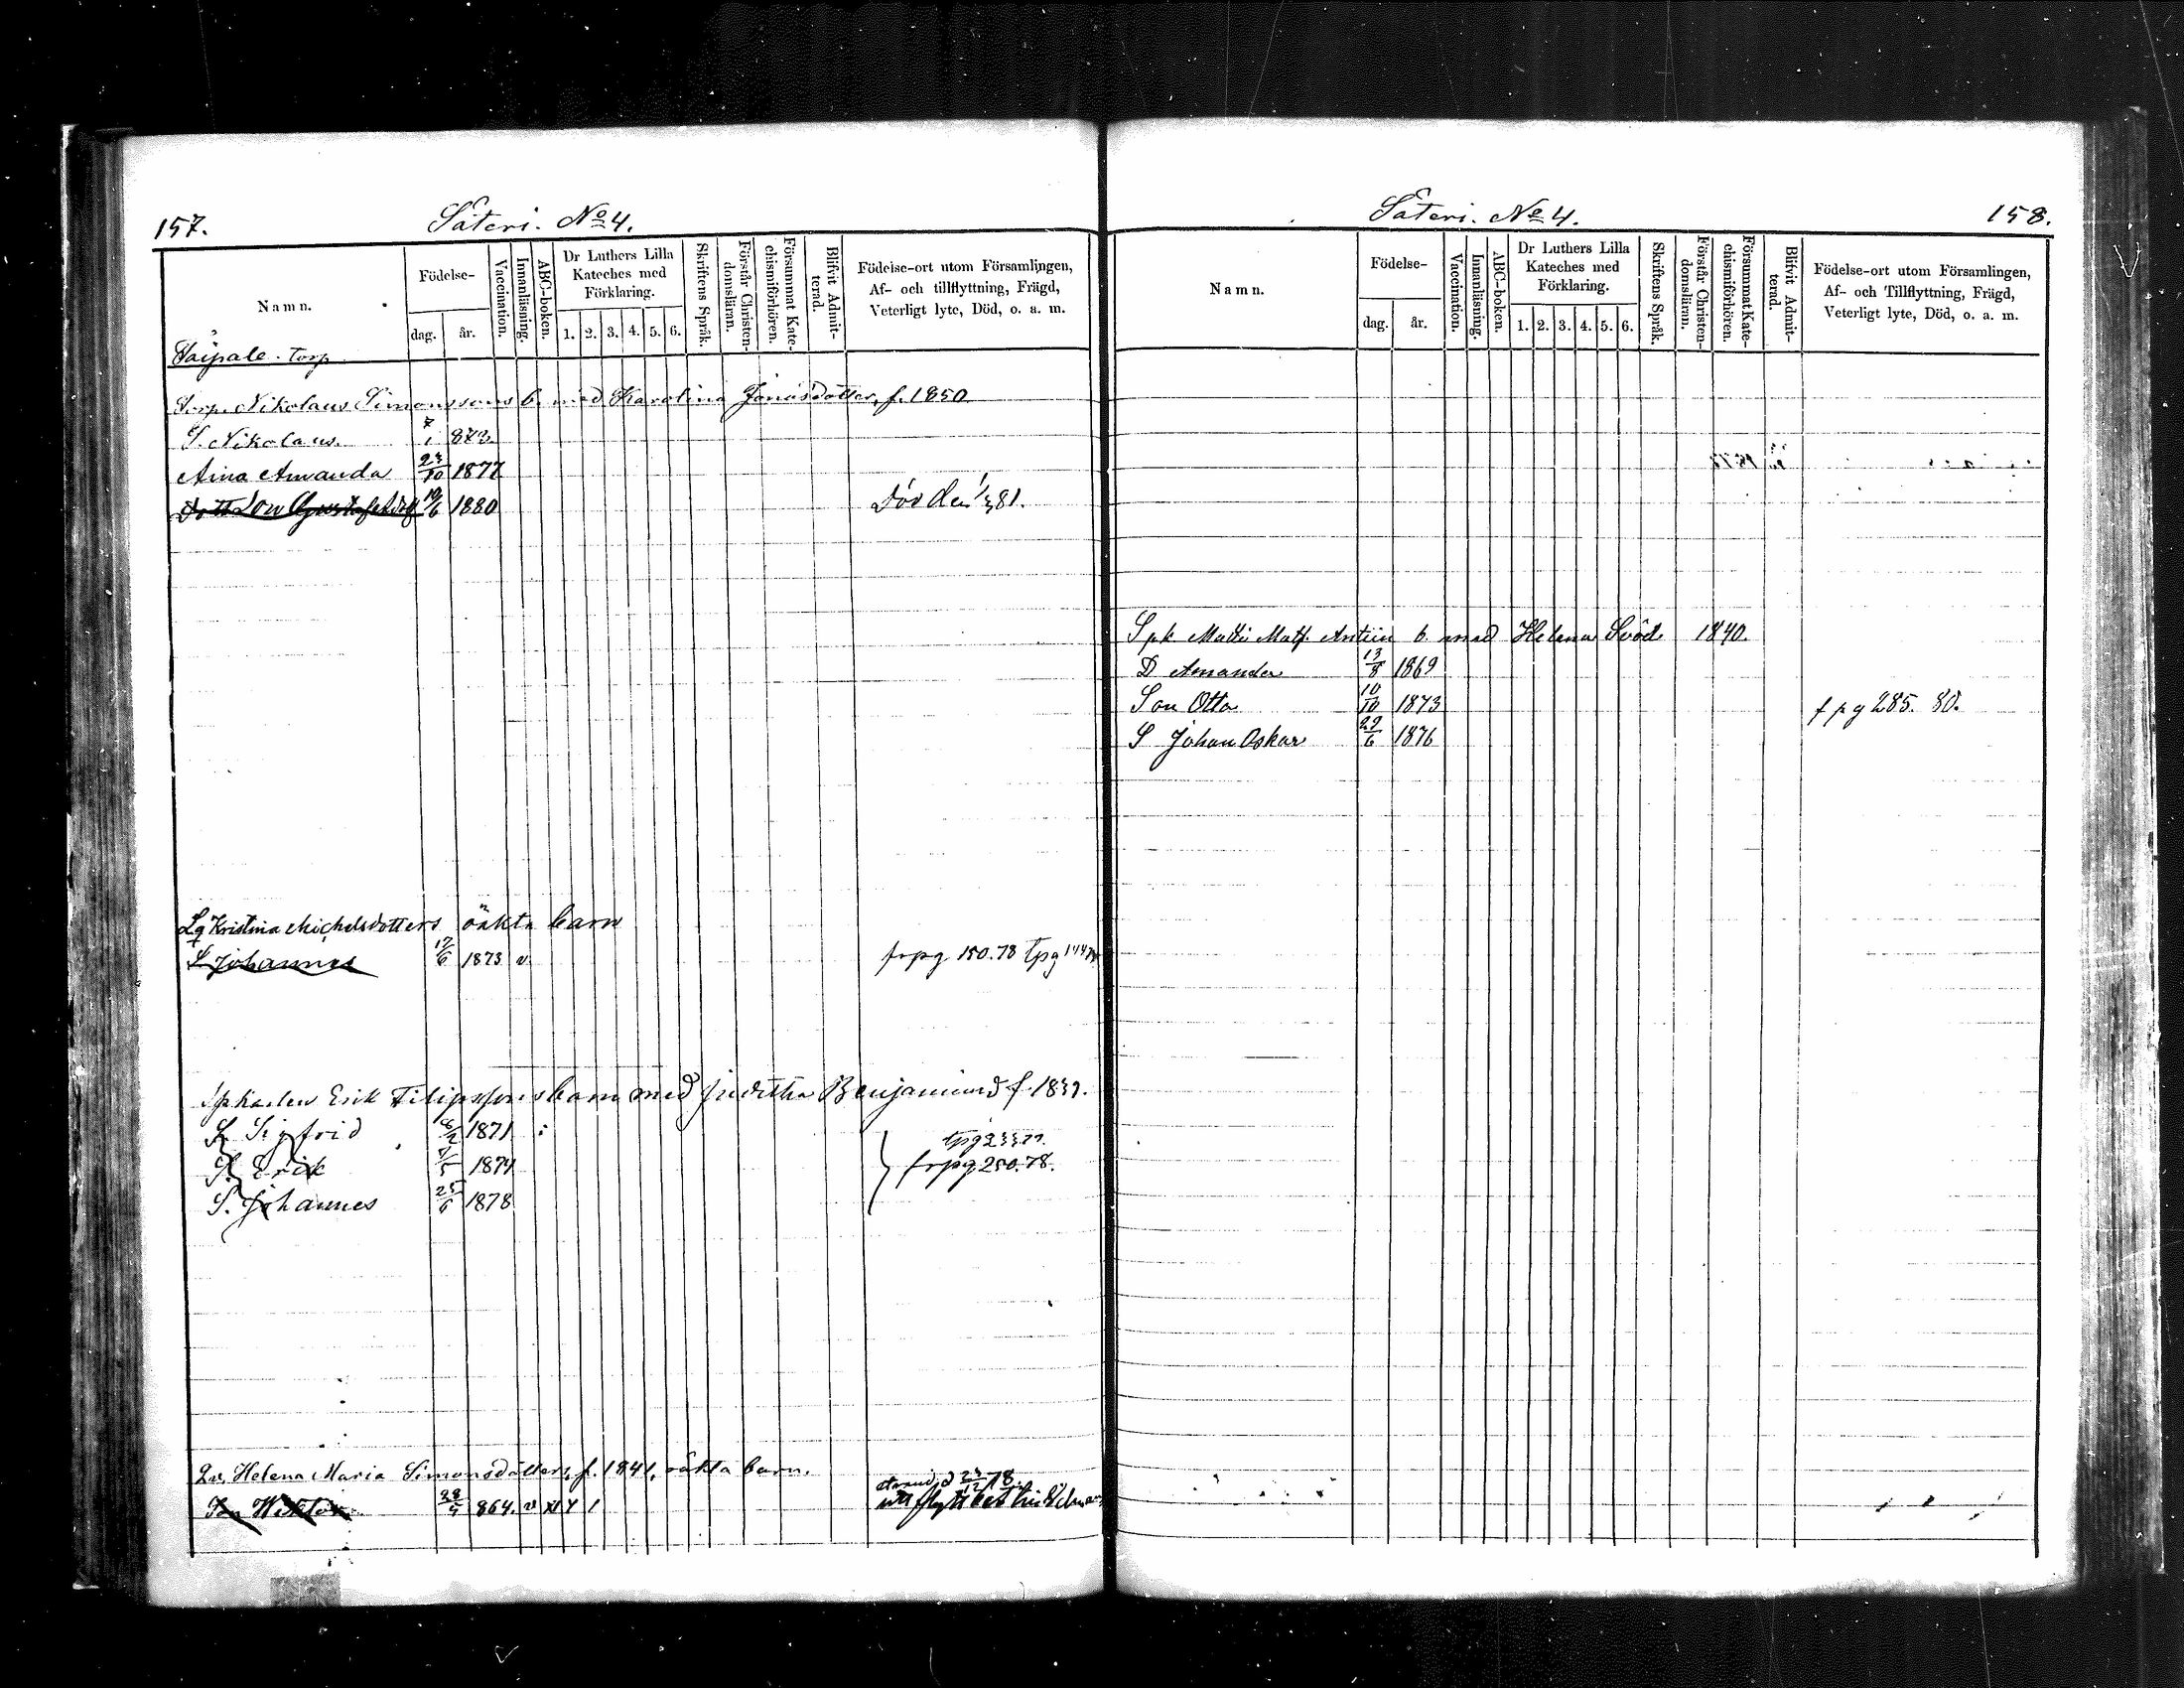 157.
Säteri. No 4.
Namn.
Födelse-
dag.
år.
Vaccination.
Innanläsning.
ABC-boken.
Dr Luthers Lilla
Kateches med
Förklaring.
1. 2. 3. 4. 5. 6.
Skriftens Språk.
Förstår Christen-
domsläran.
Försummat Kate-
chismiförhören.
Blifvit Admit-
terad.
Födelse-ort utom Församlingen,
Af- och tillflyttning, Frägd,
Veterligt lyte, Död, o. a. m.
Saipale. Torp
Torp. Nikolaus Simonssons b. med Karolina Jonasdotter, f. 1850
S. Nikolaus. 7/1 872
Aina Amanda 23/10 1877
19/6 1880 Död den 1/3 81.
Lq Kristina Michelsdotters oäkta barn
S Johannes 17/6 1873 v. frpg 150.78 tpg 144
Erik Filipssons barn med Juditha Benjaminsd f. 1839.
S. Sigfrid 1871
S. Erik 1874 frpg 250.78.
S. Johannes 25/6 1878
Qv. Helena Maria Simonsdotters, f. 1841, oäkta barn.
Son Wiktor 28/5 864. v
158.
Säteri. No 4.
Namn.
Födelse-
dag.
år.
Vaccination.
Innanläsning.
ABC-boken.
Dr Luthers Lilla
Kateches med
Förklaring.
1. 2. 3. 4. 5. 6.
Skriftens Språk.
Förstår Christen-
domsläran.
Försummat Kate-
chismiförhören.
Blifvit Admit-
terad.
Födelse-ort utom Församlingen,
Af- och Tillflyttning, Frägd,
Veterligt lyte, Död, o. a. m.
Spk Matts Matts. Antiin b. med Helena 1840
D Amanda 13/8 1869
Son Otto 10/10 1873 f pg 285. 80.
S Johan Oskar 29/6 1876